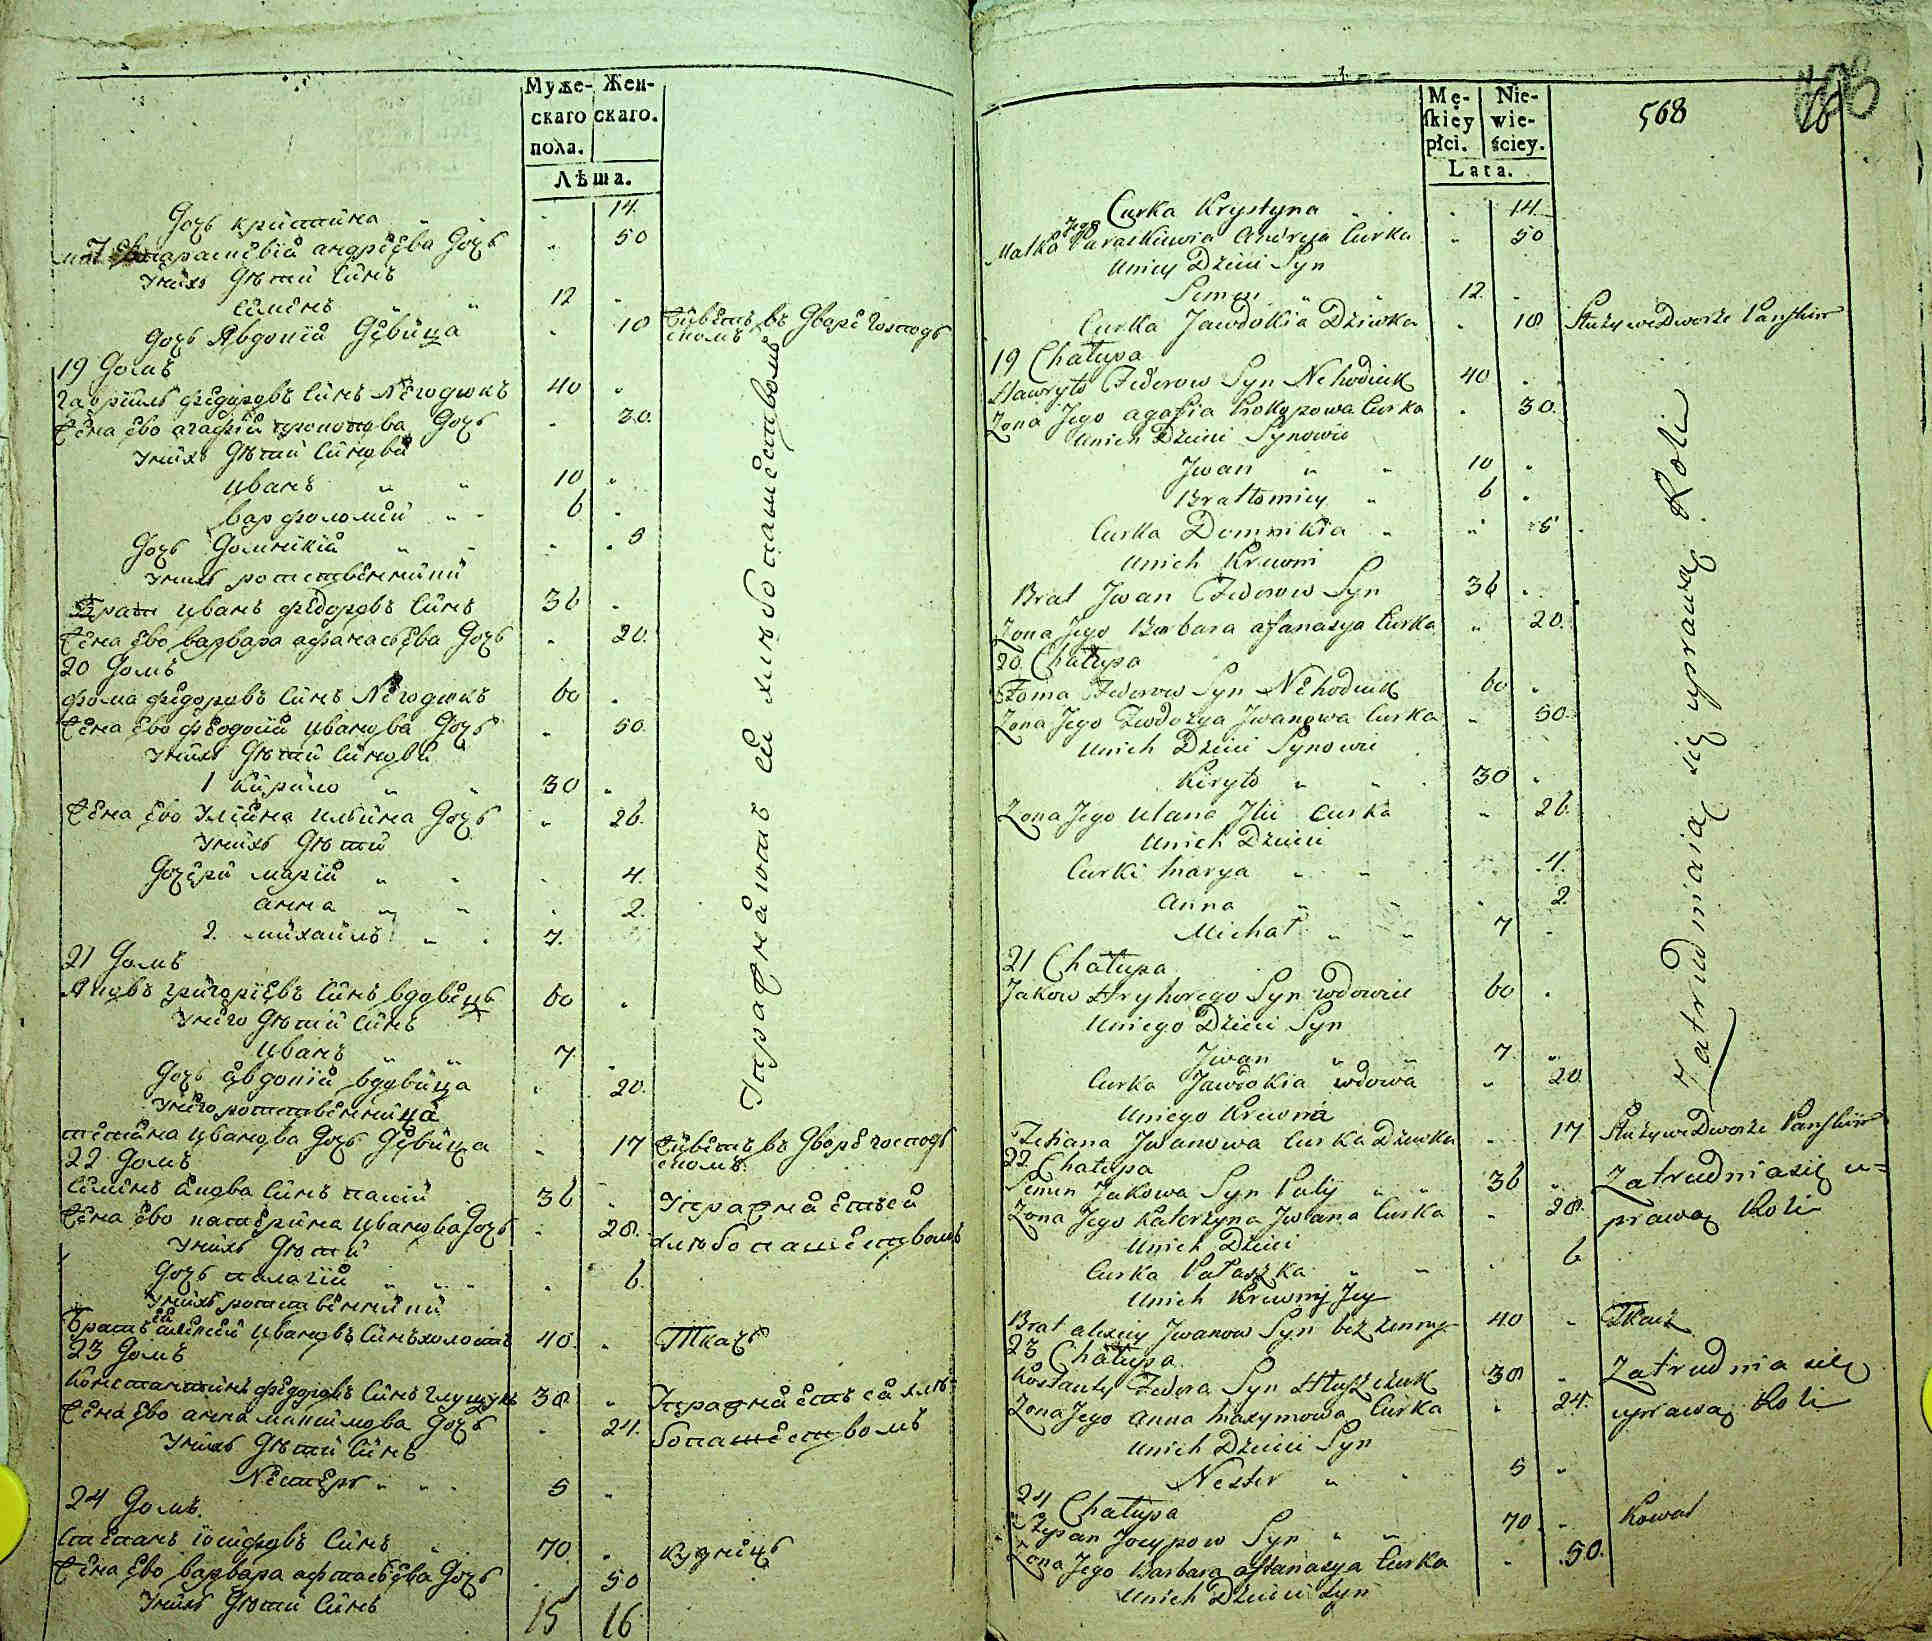 Муже-
скаго
пола.
Жен-
скаго.
Лѣта.
Дочь Кристина 14.
Параскевія андрѣева Дочь 50
Унихъ Дѣти Синъ
Симонъ 12
Дочь Явдокія Дѣвица 18 живетъ въ Дворѣ господ
скомъ
19 Домъ
гаврiилъ федоровъ Синъ Негодюкъ 40
жена Ево агафія прокопова Дочь 30.
Унихъ Дѣти Синови
иванъ 10
варфоломей 6
Дочь Домникія 5
Унихъ родственники
Братъ иванъ федоровъ Синъ 36
жена Ево варвара афанасьева Дочь 20.
20 Домъ
фома федоровъ Синъ Негодюкъ 60
жена Ево феодосія иванова Дочь 50.
Унихъ Дѣти Синови
1 Кирило 30
жена Ево Улияна ильина Дочь 26.
Унихъ Дѣти
Дочери марія 4.
анна 2.
2. михаилъ 7.
21 Домъ
Яковъ григоріевъ Синъ вдовецъ 60
Унего Дѣти Синъ
иванъ 7
Дочь Явдокія вдовица 20.
Унего родственница
тетяна иванова Дочь Дѣвица 17 живетъ въ Дворѣ господ
скомъ
22 Домъ
Симонъ Якова Синъ палій 36 Упражняется
жена Ево катерина иванова Дочь 28. хлѣбопашествомъ
Унихъ Дѣти
Дочь палагія 6.
Унихъ родственники
Братъ ея алексей ивановъ Синъ холостъ 40. Ткачь
23 Домъ
Константинъ федоровъ Синъ глущукъ 38 Упражняется хлѣ-
жена Ево анна максимова Дочь 24. бопашествомъ
Унихъ Дѣти Синъ
Нестеръ 5
24 Домъ
Степанъ іосифовъ Синъ 70 кузнецъ
жена Ево варвара афтанасьева Дочь 50
Унихъ Дѣти Синъ
15 16
Упражняются хлѣбопашествомъ
Mę-
skiey
płci.
Nie-
wie-
ściey.
Lata.
568
16
Curka Krystyna 14
Jego
Matka Paraskiewia Andreja Curka 50
Unicy Dzieci Syn
Semen 12
Curka Jawdokia Dziwka 18 Służy we Dworze Pańskim
19 Chałupa
Hawryło Fedorow Syn Nehodiuk 40
Zona Jego agafia Prokopowa Curka 30.
Unich Dzieci Synowie
Jwan 10
Bartłomiey 6
Curka Domnikia 5
Unich Krewni
Brat Jwan Fedorow Syn 36
Zona Jego Barbara afanasya Curka 20.
20 Chałupa
Foma Fedorow Syn Nehodiuk 60
Zona Jego Feodozya Jwanowa Curka 50.
Unich Dzieci Synowie
Kiryło 30
Zona Jego Ulana Jlii Curka 26.
Unich Dzieci
Curki Marya 4.
Anna 2.
Michał 7
21 Chałupa
Jakow Hryhorego Syn wdowiec 60
Uniego Dzieci Syn
Jwan 7
Curka Jawdokia wdowa 20
Uniego Krewna
Tetiana Jwanowa Curka Dziewka 17 Służy we Dworze Pańskim
22 Chałupa
Semen Jakowa Syn Palij 36 Zatrudnia się u=
Zona Jego Katerzyna Jwana Curka 28. prawą Roli
Unich Dzieci
Curka Pałaszka 6
Unich Krewny Jey
Brat alexiy Jwanow Syn bezżenny 40 Tkacz
23 Chałupa
Kostanty Fedora Syn Hłuszczuk 38 Zatrudnia się
Zona Jego Anna Maxymowa Curka 24. uprawą Roli
Unich Dzieci Syn
Nester 5
24 Chałupa
Stepan Jozypow Syn 70 Kowal
Zona Jego Barbara aftanasya Curka 50.
Unich Dzieci Syn
Zatrudniaią się uprawą Roli